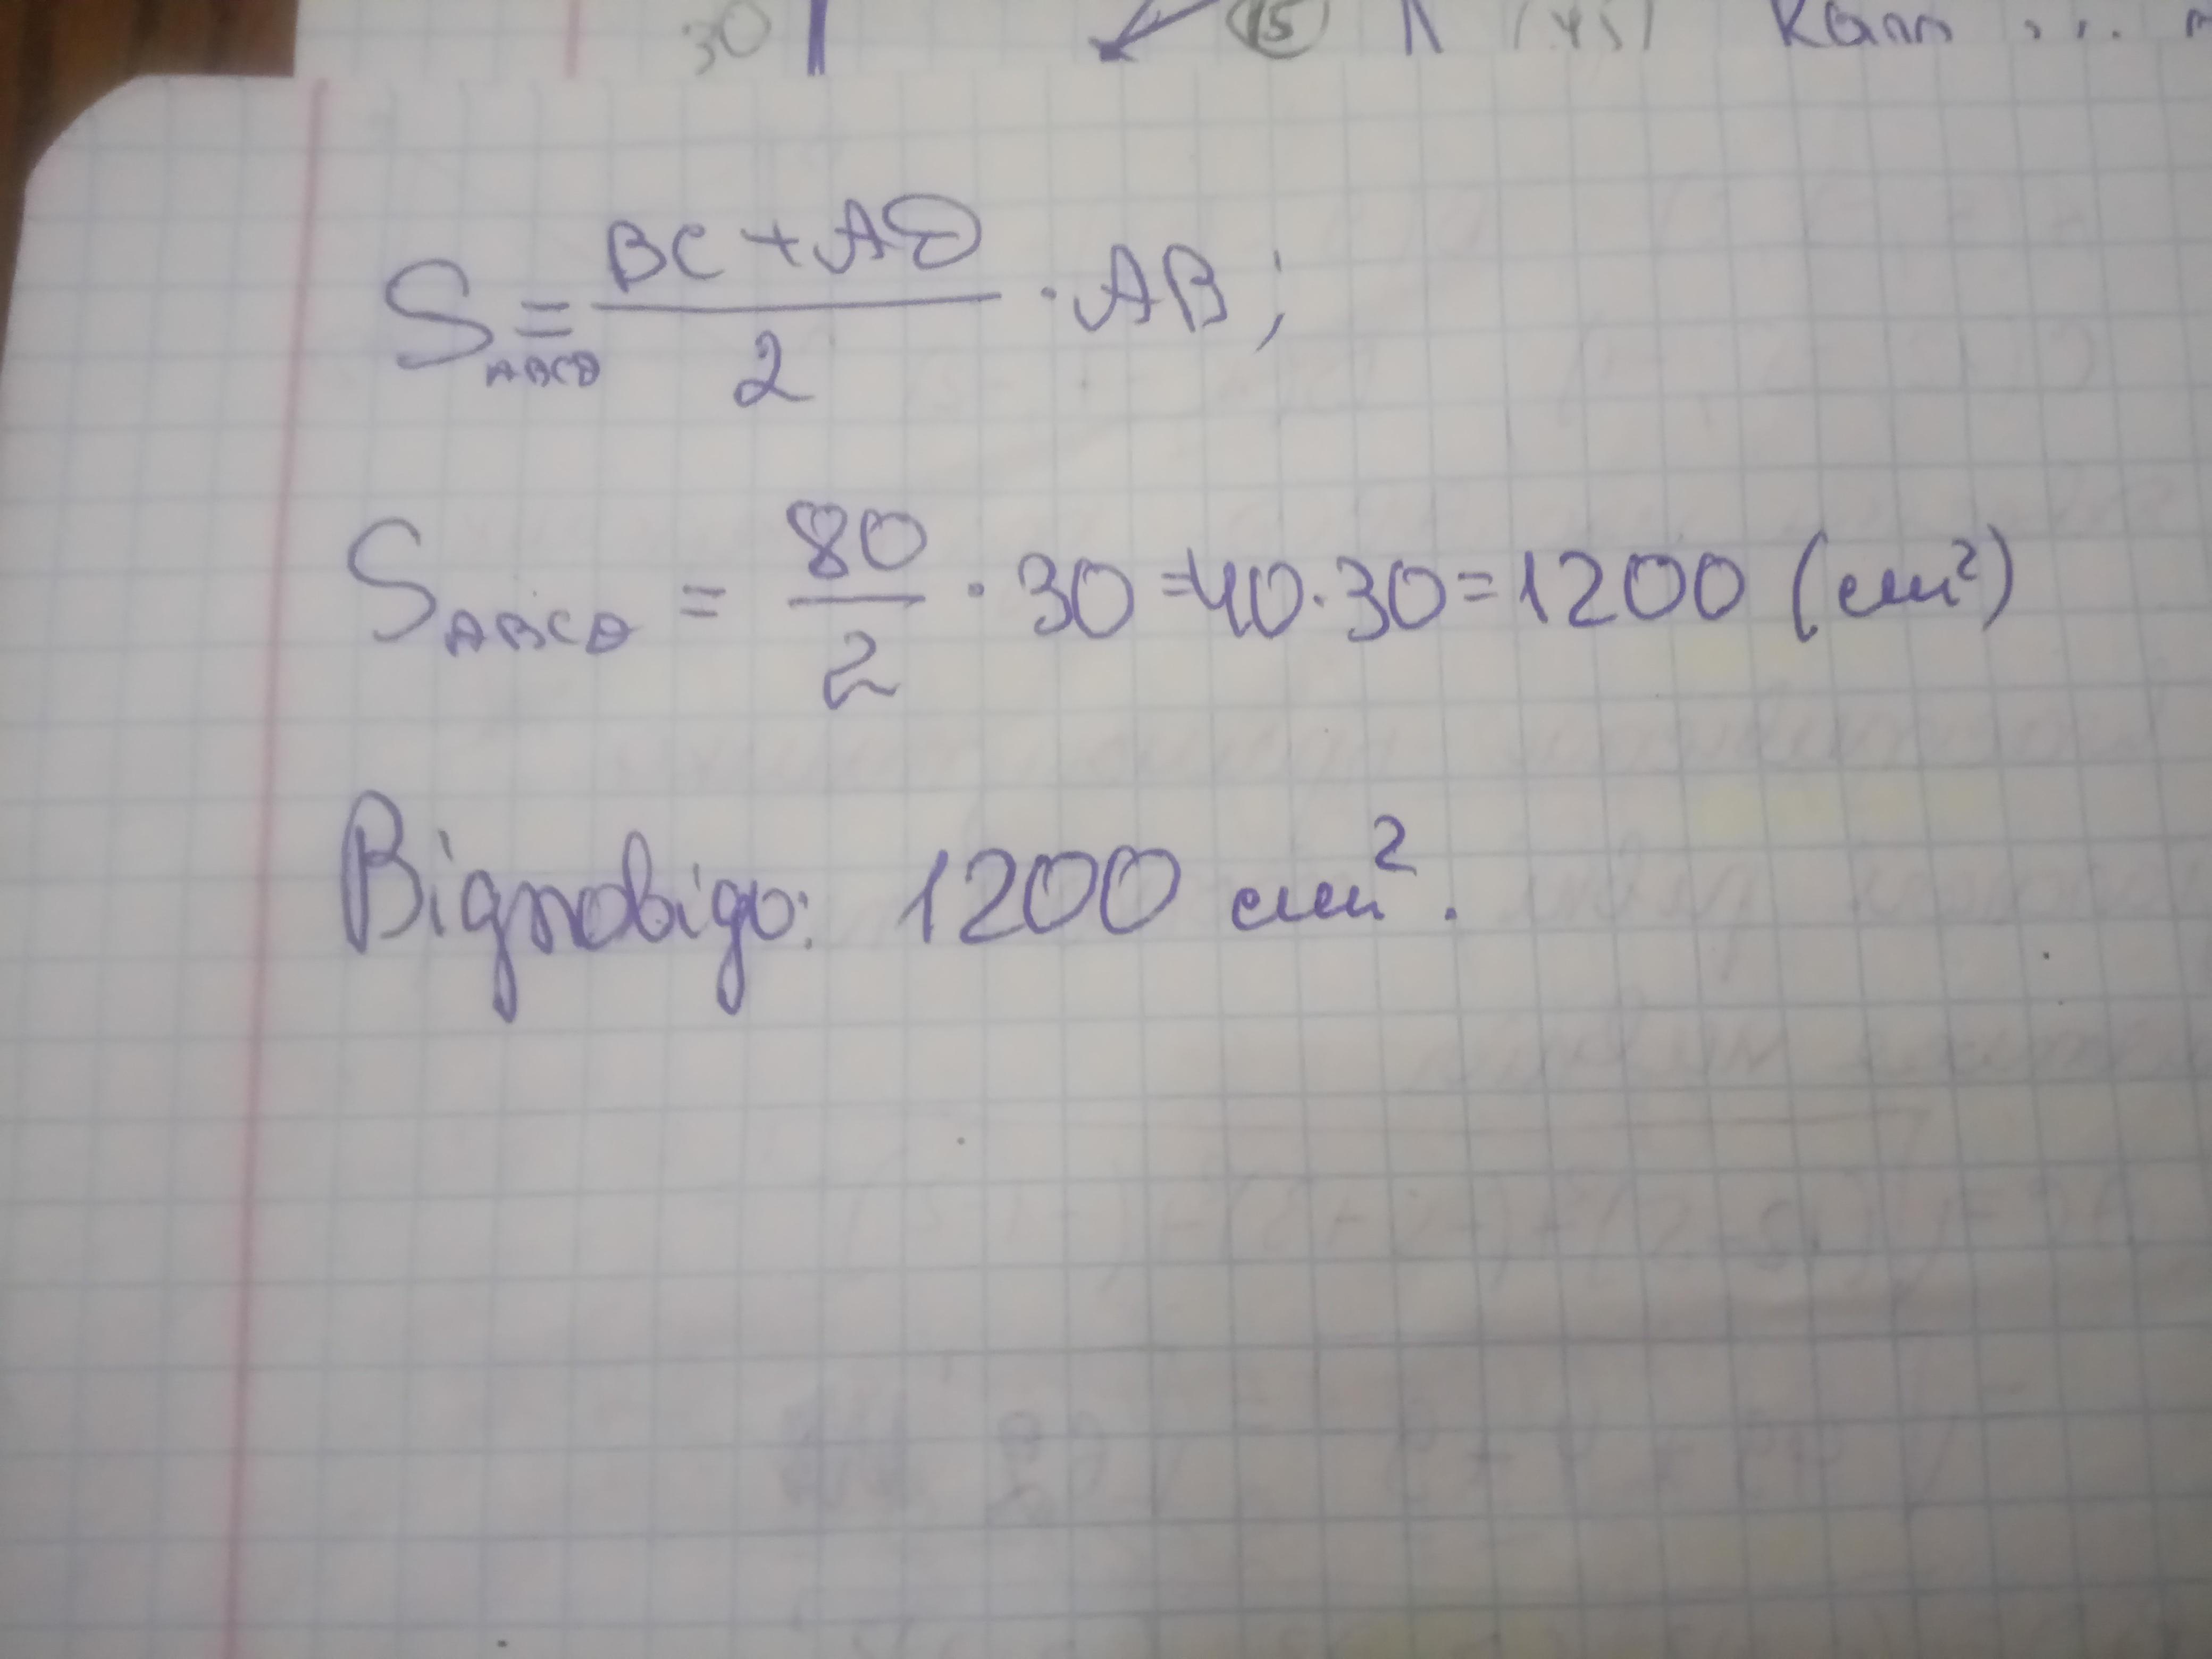 30 15
S_ABCD = (BC + AD)/2 · AB;
S_ABCD = 80/2 · 30 = 40 · 30 = 1200 (см²)
Відповідь: 1200 см².